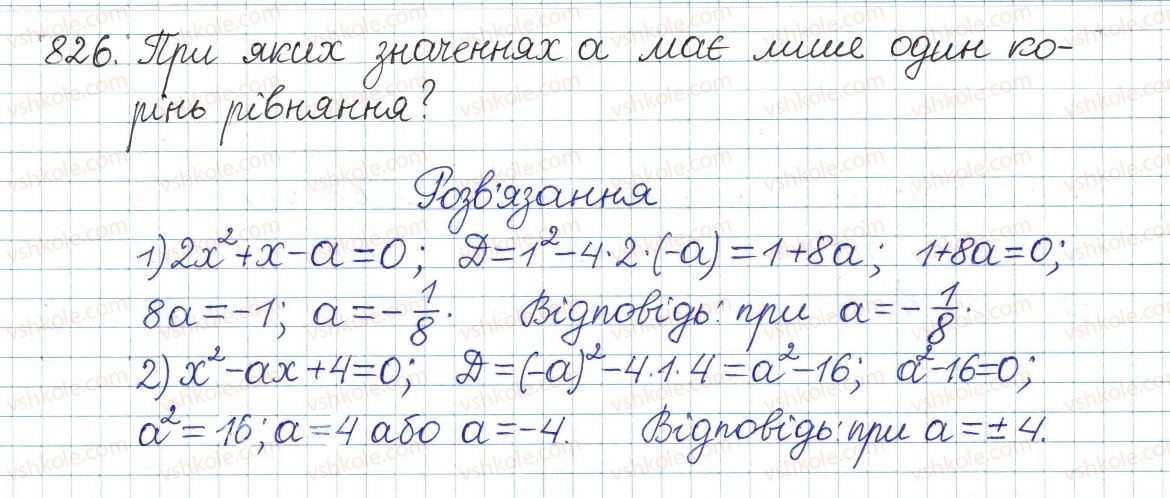 826. При яких значеннях а має лише один ко-
рінь рівняння?
Розв'язання
1) 2x²+x-a=0; Д=1²-4·2·(-a)=1+8a; 1+8a=0;
8a=-1; a=-1/8. Відповідь: при a=-1/8.
2) x²-ax+4=0; Д=(-a)²-4·1·4=a²-16; a²-16=0;
a²=16; a=4 або a=-4. Відповідь: при a=±4.